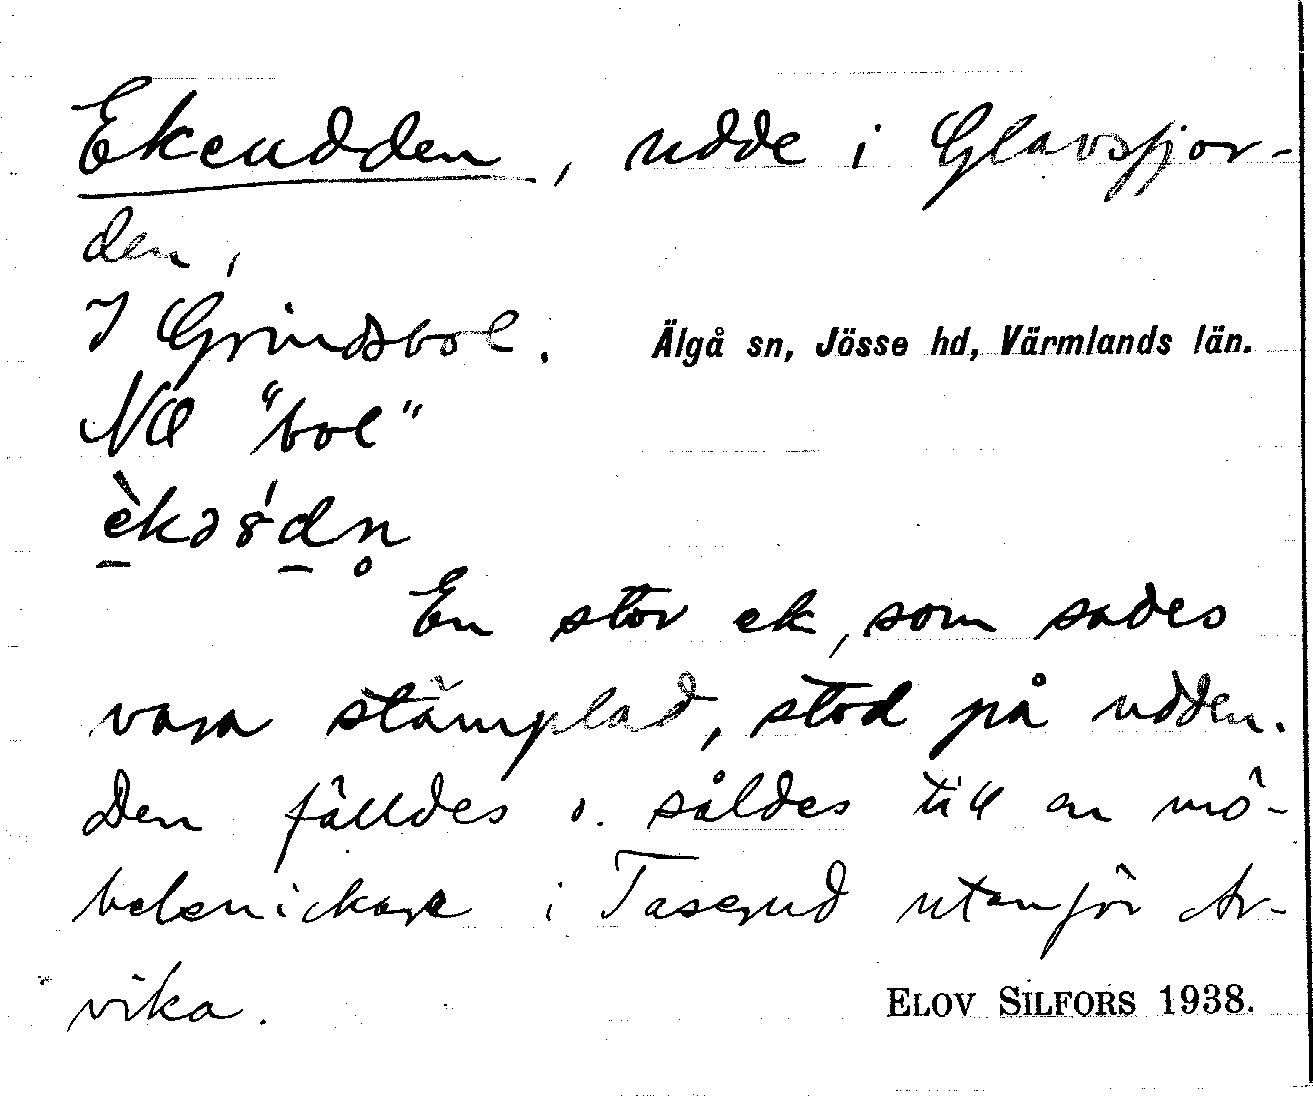 Ekeudden, udde i Glavsfjor-
den,
I Grindsbol. Älgå sn, Jösse hd, Värmlands län.
NÖ "bol"
En stor ek, som sades
vara stämplad, stod på udden.
Den fälldes o. såldes till en mö-
belsnickare i Taserud utanför Ar-
vika.
ELOV SILFORS 1938.